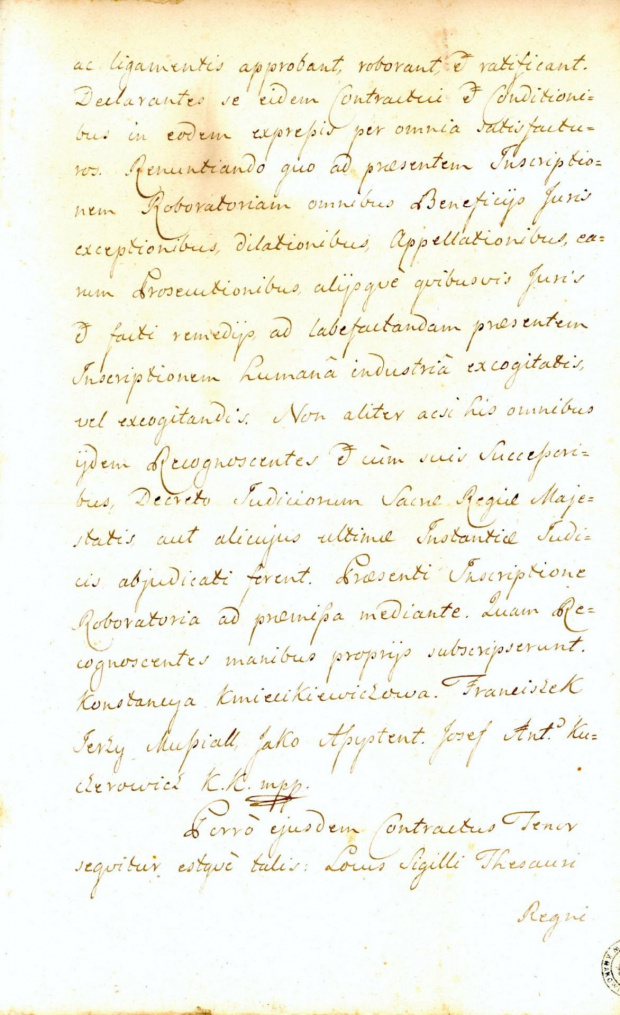 ac ligamentis approbant, roborant, & ratificant.
Declarantes se eidem Contractui & Conditioni=
bus in eodem expreſsis per omnia satisfactu=
ros. Renuntiando quo ad præsentem Inscriptio=
nem Roboratoriam omnibus Beneficijs Juris
exceptionibus, dilationibus, Appellationibus, ea=
rum Prosecutionibus, alijsqvè qvibusvis Juris
& facti remedijs, ad labefactandam præsentem
Inscriptionem humanâ industriâ excogitatis,
vel excogitandis. Non aliter acsi his omnibus
ijdem Recognoscentes & cùm suis Succeſsori=
bus, Decreto Judiciorum Sacræ Regiæ Maje=
statis, aut alicujus ultimæ Instantiæ Judi=
cis abjudicati ferent. Præsenti Inscriptione
Roboratoria ad præmiſsa mediante. Quam Re=
cognoscentes manibus proprijs subscripserunt.
Konstancya Kmiecikiewiczowa. Franciszek
Jerzy Muſsiall, Jako Aſsystent. Josef Ant.º Ku=
czerowicz K.K. mpp.
Porrò ejusdem Contractus Tenor
seqvitur, estqvè talis: Locus Sigilli Thesauri
Regni